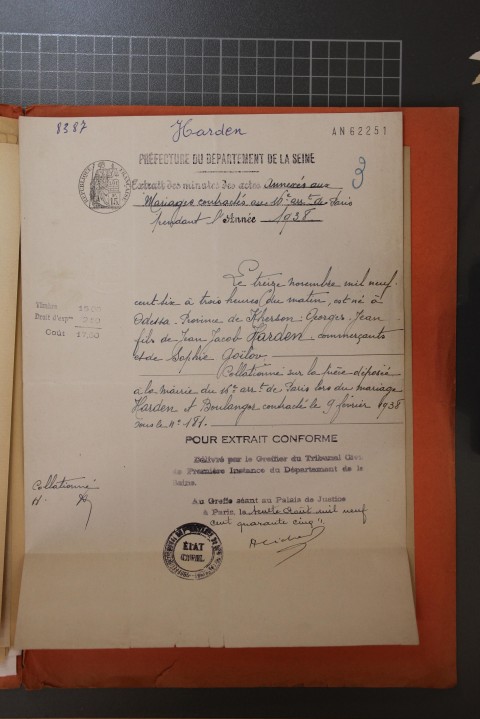 8387
Harden
AN 62251
PRÉFECTURE DU DÉPARTEMENT DE LA SEINE
3
Extrait des minutes des actes Annexés aux
Mariages contractés au 16e arrt de Paris
pendant l'Année 1938
Le treize novembre mil neuf
cent dix à trois heures du matin, est né à
Odessa Province de Kherson Georges Jean
fils de Jean Jacob HARDEN, commerçants
et de Sophie
Timbre 15.00
Droit d'exp 2.00
Coût 17.00
Collationné sur la pièce déposée
à la mairie du 16e arrt de Paris lors du mariage
Harden et Boulanger contracté le 9 février 1938
sous le No 181.
POUR EXTRAIT CONFORME
Délivré par le Greffier du Tribunal Civil
de Première Instance du Département de la
Seine.
Au Greffe séant au Palais de Justice
à Paris, le trente Août mil neuf
cent quarante cinq
Collationné
ÉTAT
CIVIL